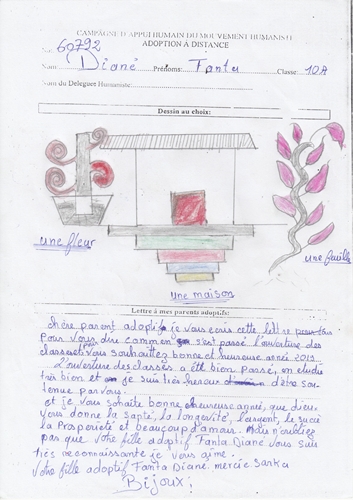 CAMPAGNE D'APPUI HUMAIN DU MOUVEMENT HUMANISTE
ADOPTION A DISTANCE
60792
Nom Diané Prénoms: Fanta Classe 10A
Nom du Délégué Humaniste:
Dessin au choix:
une fleur
une maison
une feuille
Lettre à mes parents adoptifs:
chère parent adoptif je vous écris cette lettre
Pour vous dire commen s'est passé l'ouverture des
classe et vous souhaittez bonne et heureuse année 2019
L'ouverture des classes a été bien passé, on etudie
très bien et je suis très heureux d'être sou-
tenue par vous.
et je vous souhaite bonne heureuse année, que dieu
vous donne la santé, la longévité, l'argent, le succé
la Prosperiété et beaucoup d'amour. Mais n'oubliez
pas que votre fille adoptif Fanta Diané vous suis
très reconnaissante je vous aime.
Votre fille adoptif Fanta Diané. mercie Sarka
Bijoux!